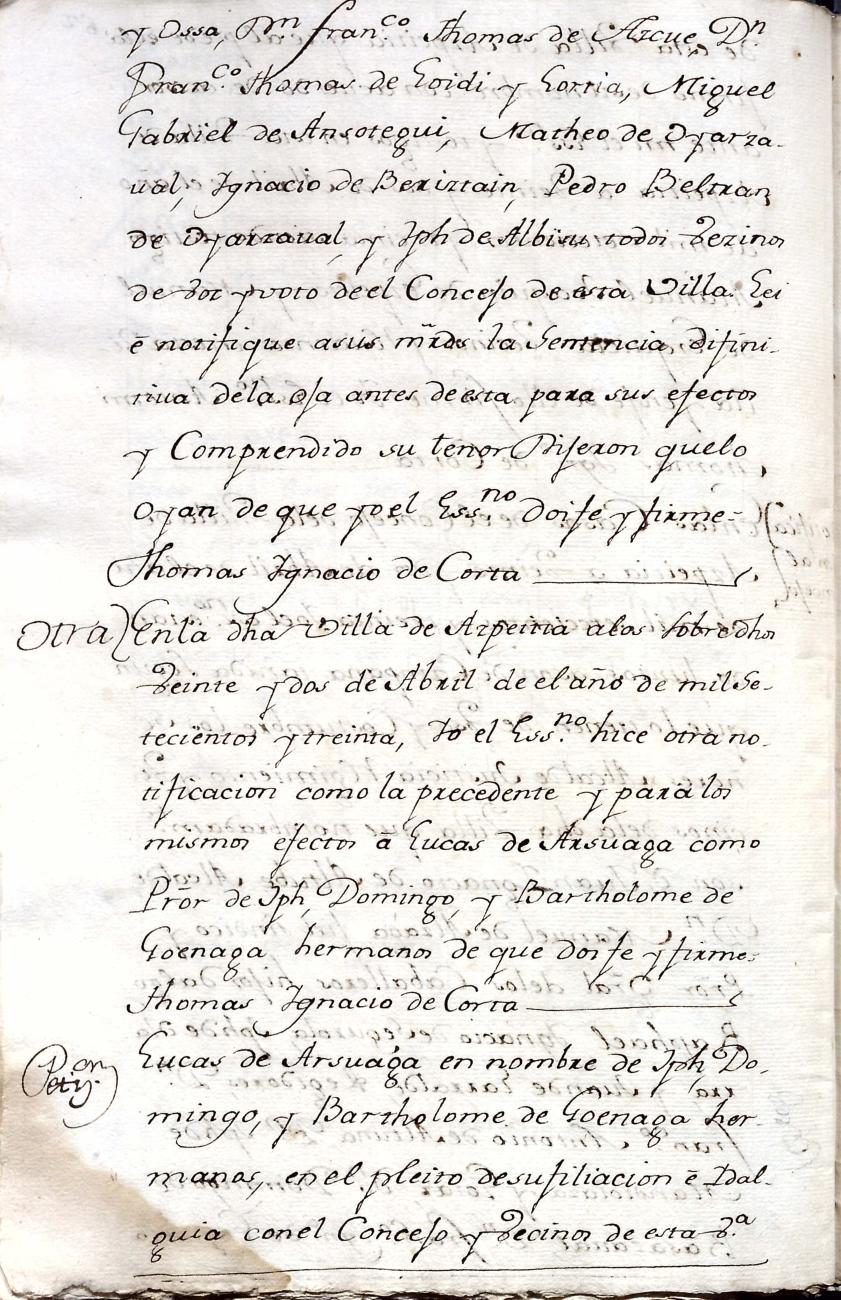 y Ossa, Dn franco. Thomas de Azcue, Dn
Franco. Thomas de Loidi y Lortia, Miguel
Gabriel de Ansotegui, Matheo de Oyarza-
ual, Ignacio de Beriztain, Pedro Beltran
de Oyarzaual, y Iph de Albisu todos Vezinos
de voz y voto de el Concejo de esta Villa. Lei
ē notifique asus mrds la Sentencia, difini-
tiua dela oja antes deesta para sus efectos
y Comprendido su tenor Dijeron quelo
oyan de que yo el Essno. doife y firme=
Thomas Ignacio de Corta
Otra) Enla dha Villa de Azpeitia alos sobredhos
Veinte y dos de Abril de el año de mil Se-
tecientos y treinta, Yo el Essno. hice otra no-
tificacion como la precedente y para los
mismos efectos ā Lucas de Arsuaga como
Pror de Iph, Domingo, y Bartholome de
Goenaga hermanos de que doife y firme=
Thomas Ignacio de Corta
Petizon
Lucas de Arsuaga en nombre de Iph, Do-
mingo, y Bartholome de Goenaga her-
manos, en el pleito desufiliacion ē Idal-
guia con el Concejo y Vecinos de esta Va.